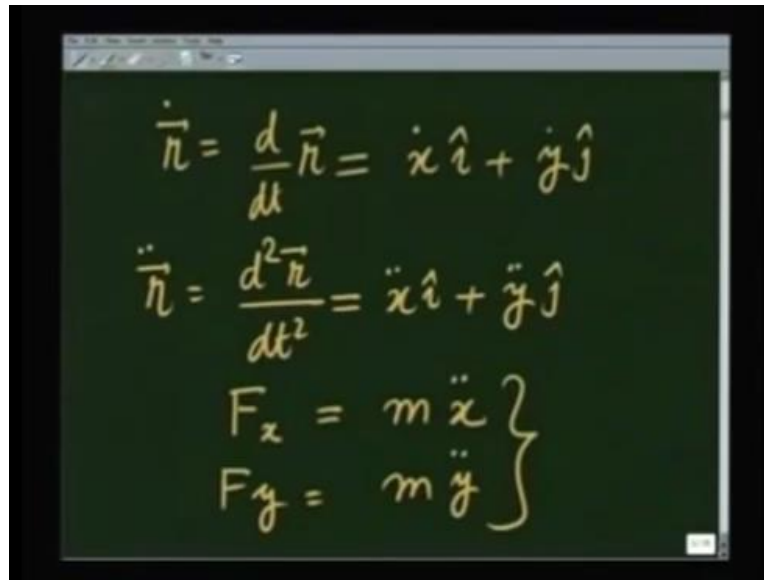 $\dot{\vec{r}} = \frac{d}{dt}\vec{r} = \dot{x}\hat{i} + \dot{y}\hat{j}$
$\ddot{\vec{r}} = \frac{d^2\vec{r}}{dt^2} = \ddot{x}\hat{i} + \ddot{y}\hat{j}$
$F_x = m\ddot{x}$
$F_y = m\ddot{y}$ }